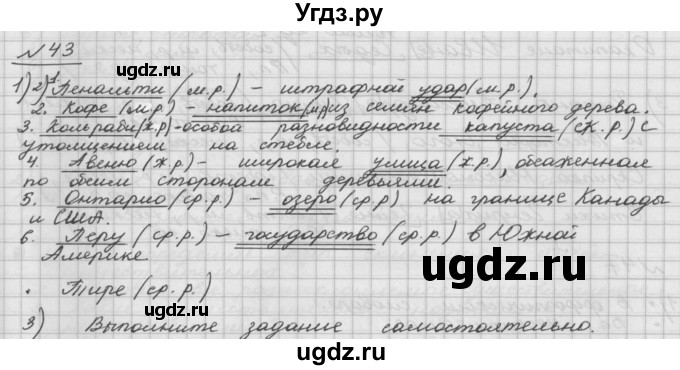 Угдз.ру
№43
1)2)1. Пенальти (м.р.) – штрафной удар (м.р.).
2. Кофе (м.р.) – напиток (м.р.) из семян кофейного дерева.
3. Кольраби (ж.р.) – особая разновидности капуста (ж.р.) с
утолщением на стебле.
4. Авеню (ж.р.) – широкая улица (ж.р.), обсаженная
по обеим сторонам деревьями.
5. Онтарио (ср.р.) – озеро (ср.р) на границе Канады
и США.
6. Перу (ср.р.) – государство (ср.р.) в Южной
Америке
. Тире (ср.р.)
3) Выполните задание самостоятельно.
ugdz.ru
ugdz.ru
ugdz.ru
ugdz.ru
ugdz.ru
ugdz.ru
ugdz.ru
ugdz.ru